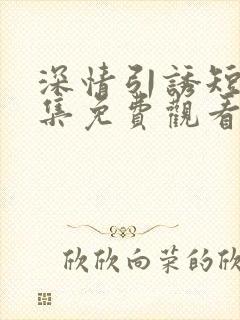 深情引誘短
集免費觀看
欣欣向荣的欣